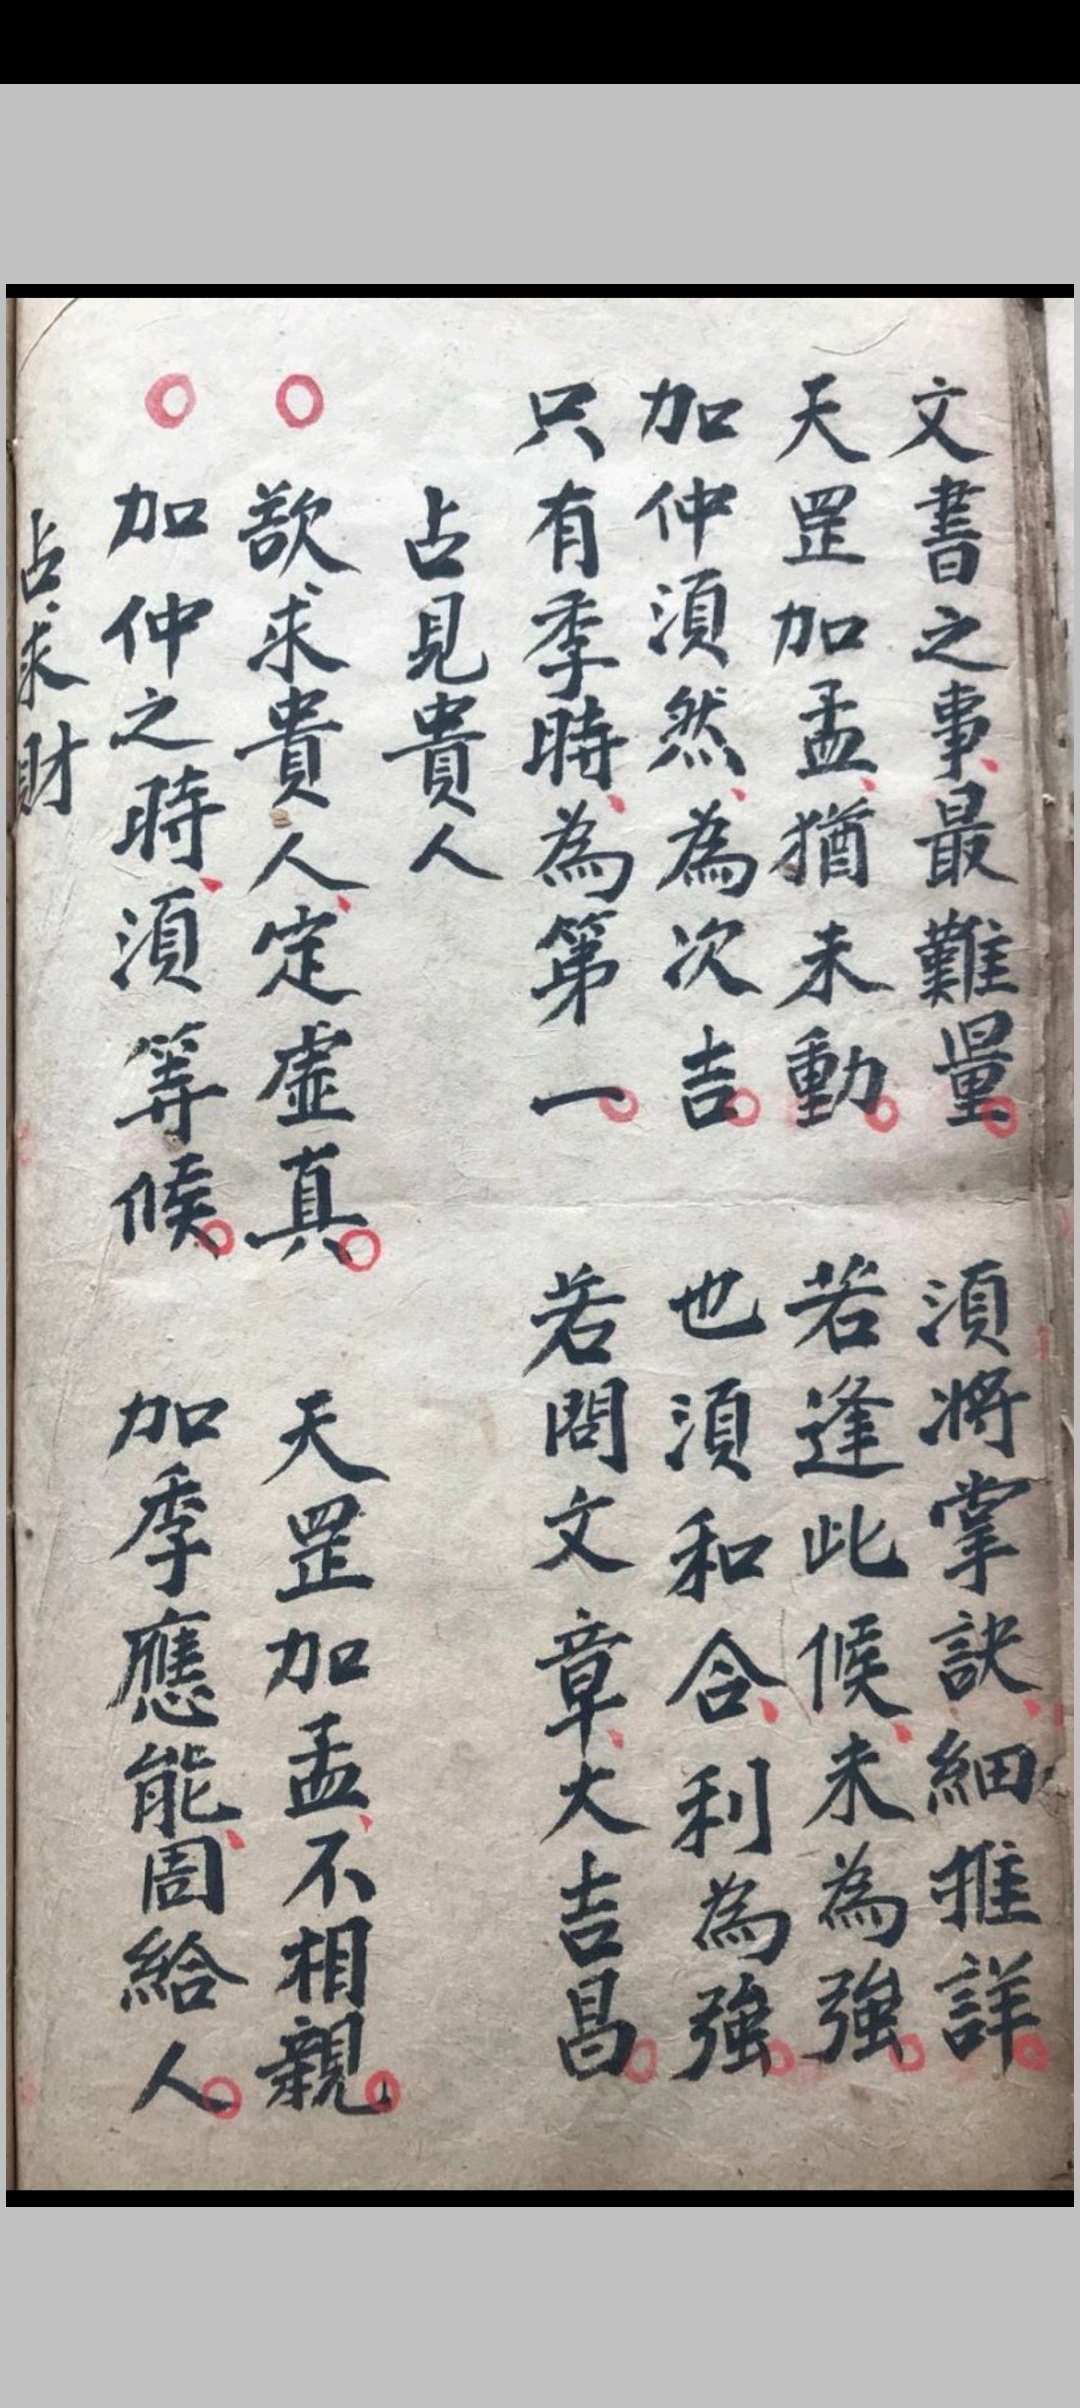 文書之事、最難量。須將掌訣、細推詳。
天罡加孟、猶未動。若逢此候、未為強。
加仲須然、為次吉。也須和合、利為強。
只有季時、為第一。若問文章、大吉昌。
占見貴人
欲求貴人、定虛真。天罡加孟、不相親。
加仲之時、須等候。加季應能、周給人。
占求財